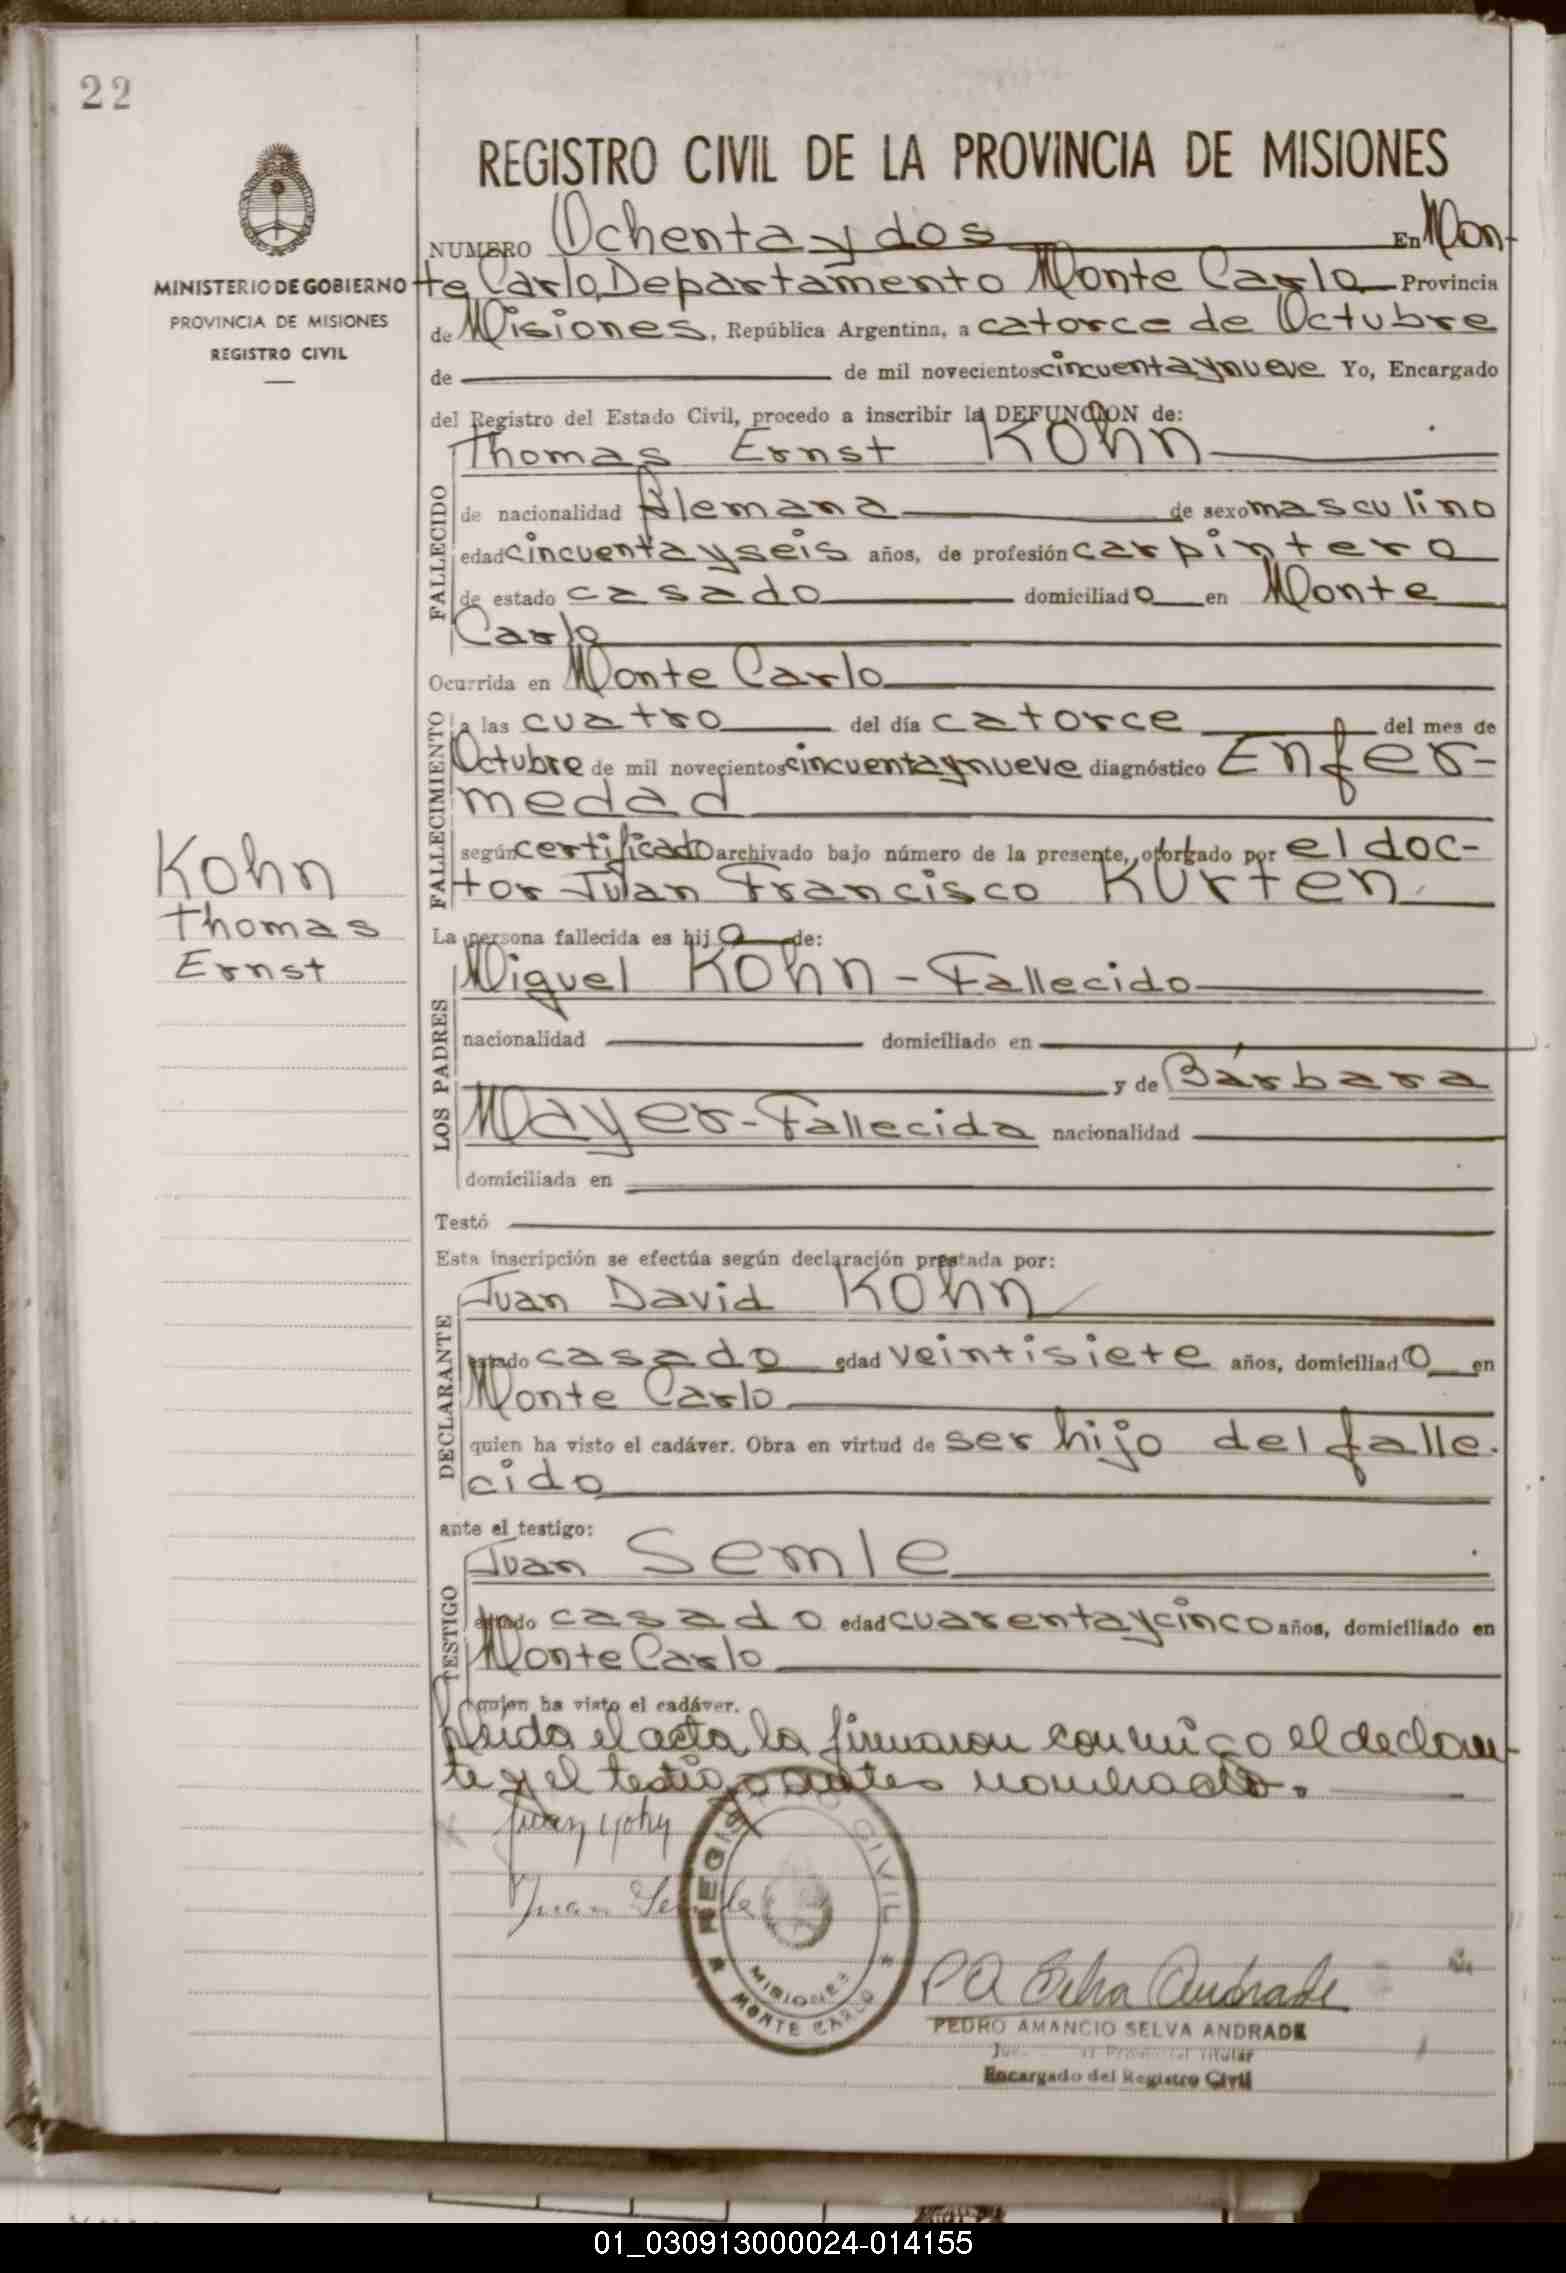 22
REGISTRO CIVIL DE LA PROVINCIA DE MISIONES
MINISTERIO DE GOBIERNO
PROVINCIA DE MISIONES
REGISTRO CIVIL
NUMERO Ochenta y dos En Mon-
te Carlo, Departamento Monte Carlo Provincia
de Misiones, República Argentina, a catorce de Octubre
de de mil novecientos cincuenta y nueve Yo, Encargado
del Registro del Estado Civil, procedo a inscribir la DEFUNCION de:
Thomas Ernst Kohn
FALLECIDO
de nacionalidad Alemana de sexo masculino
edad cincuenta y seis años, de profesión carpintero
de estado casado domiciliado en Monte
Carlo
Ocurrida en Monte Carlo
FALLECIMIENTO
a las cuatro del día catorce del mes de
Octubre de mil novecientos cincuenta y nueve diagnóstico Enfer-
medad
según certificado archivado bajo número de la presente, otorgado por el doc-
tor Juan Francisco Kurten
Kohn
Thomas
Ernst
La persona fallecida es hijo de:
Miguel Kohn - Fallecido
LOS PADRES
nacionalidad domiciliado en
y de Bárbara
Mayer - Fallecida nacionalidad
domiciliada en
Testó
Esta inscripción se efectúa según declaración prestada por:
Juan David Kohn
DECLARANTE
estado casado edad veintisiete años, domiciliado en
Monte Carlo
quien ha visto el cadáver. Obra en virtud de ser hijo del falle-
cido
ante el testigo:
Juan Semle
TESTIGO
estado casado edad cuarenta y cinco años, domiciliado en
Monte Carlo
quien ha visto el cadáver.
Leida el acta la firmaron conmigo el declaran-
te y el testigo antes nombrado.
Juan
Juan Semle
REGISTRO CIVIL
MISIONES
MONTE CARLO
P A Selva Andrade
PEDRO AMANCIO SELVA ANDRADE
Titular
Encargado del Registro Civil
01_030913000024-014155